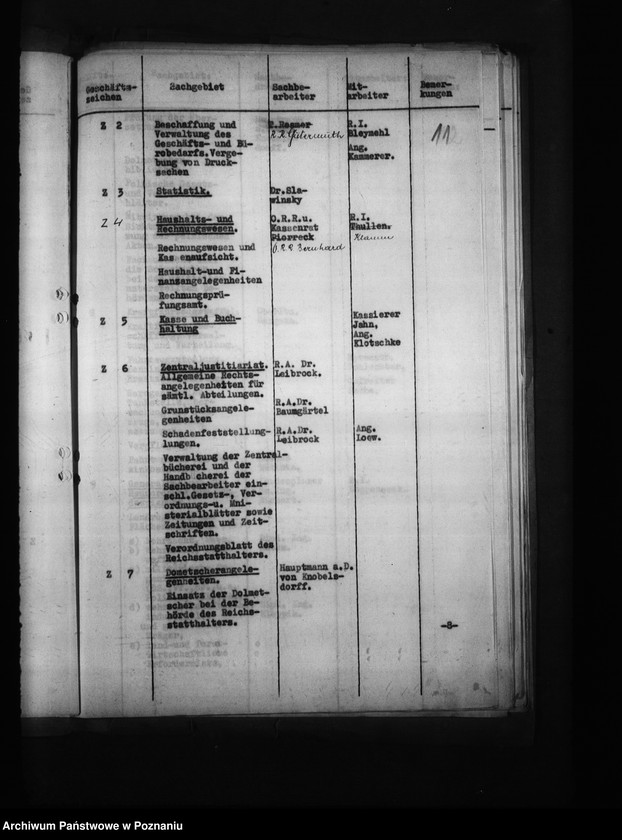 Geschäfts-
zeichen
Sachgebiet
Sachbe-
arbeiter
Mit-
arbeiter
Bemer-
kungen
Z 2
Beschaffung und
Verwaltung des
Geschäfts- und Bü-
robedarfs.Verge-
bung von Druck-
sachen
R.I.
Bleymehl
Ang.
Kammerer.
11
Z 3
Statistik.
Dr.Sla-
winsky
Z 4
Haushalts- und
Rechnungswesen.
O.R.R.u.
Kassenrat
Pierreck
O.R.R Bernhard
R.I.
Thullen.
Klamm
Rechnungswesen und
Kas enaufsicht.
Haushalt-und Fi-
nansangelegenheiten
Rechnungsprü-
fungsamt.
Z 5
Kasse und Buch-
haltung
Kassierer
Jahn,
Ang.
Klotschke
Z 6
Zentraljustitiariat.
Allgemeine Rechts-
angelegenheiten für
sämtl. Abteilungen.
R.A. Dr.
Leibrock.
Grunstücksangele-
genheiten
R.A.Dr.
Baumgärtel
Schadenfeststellung-
lungen.
R.A.Dr.
Leibrock
Ang.
Loew.
Verwaltung der Zentral-
bücherei und der
Handb cherei der
Sachbearbeiter ein-
schl.Gesetz-, Ver-
ordnungs-u. Mni-
sterialblätter sowie
Zeitungen und Zeit-
schriften.
Verordnungsblatt des
Reichsstatthalters.
Z 7
Dometscherangele-
genheiten.
Einsatz der Dolmet-
scher bei der Be-
hörde des Reichs-
statthalters.
Hauptmann a.D.
von Knobels-
dorff.
-8-
Archiwum Państwowe w Poznaniu